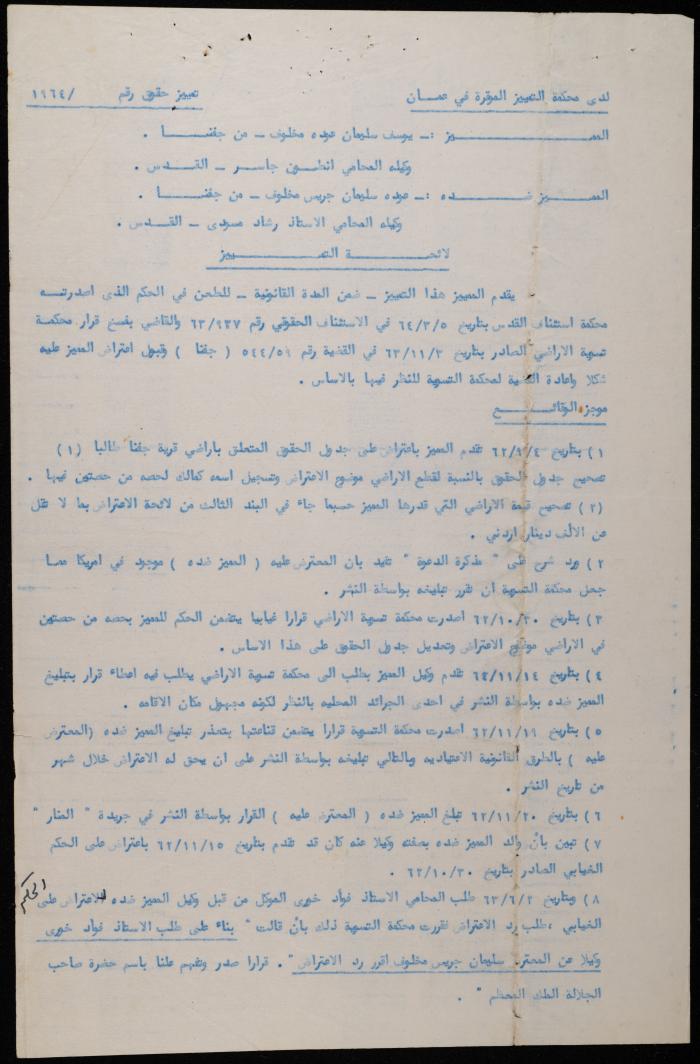 لدى محكمة التمييز الموقرة في عمـان تمييز حقوق رقم /١٩٦٤
المميـــز :ـ يوسف سليمان عوده مخلوف ـ من جفنـــا .
وكيله المحامي انطـون جاسـر ـ القـدس .
المميـــز ضـــده :ـ عوده سليمان جريس مخلوف ـ من جفنـــا .
وكيله المحامي الاستاذ رشاد مسودى ـ القـدس .
لائحـــة التميـــيز
يقدم المميز هذا التمييز ـ ضمن المدة القانونية ـ للطعن في الحكم الذى اصدرتـه
محكمة استئناف القدس بتاريخ ٦٤/٣/٥ في الاستئناف الحقوقي رقم ٦٣/٩٣٧ والقاضي بفسخ قرار محكمـة
تسوية الاراضي الصادر بتاريخ ٦٣/١١/٣ في القضية رقم ٥٤٤/٥٩ ( جفنا ) وقبول اعتراض المميز عليه
شكلا واعادة القضية لمحكمة التسوية للنظر فيها بالاساس .
موجز الوقائـــع
١) بتاريخ ٦٢/٩/٤ تقدم المميز باعتراض على جدول الحقوق المتعلق باراضي قرية جفنا طالبا (١)
تصحيح جدول الحقوق بالنسبة لقطع الاراضي موضوع الاعتراض وتسجيل اسمه كمالك لحصه من حصتين فيها .
(٢) تصحيح قيمة الاراضي التي قدرها المميز حسبما جاء في البند الثالث من لائحة الاعتراض بما لا تقل
عن الالف دينار اردني .
٢) ورد شرح على " مذكرة الدعوة " تفيد بان المعترض عليه ( المميز ضده ) موجود في امريكا ممـا
جعل محكمة التسوية ان تقرر تبليغه بواسطة النشر .
٣) بتاريخ ٦٢/١٠/٣٠ اصدرت محكمة تسوية الاراضي قرارا غيابيا يتضمن الحكم للمميز بحصه من حصتين
في الاراضي موضوع الاعتراض وتعديل جدول الحقوق على هذا الاساس .
٤) بتاريخ ٦٢/١١/١٤ تقدم وكيل المميز بطلب الى محكمة تسوية الاراضي يطلب فيه اعطاء قرار بتبليغ
المميز ضده بواسطة النشر في احدى الجرائد المحليه بالنظر لكونه مجهول مكان الاقامه .
٥) بتاريخ ٦٢/١١/١٩ اصدرت محكمة التسوية قرارا يتضمن قناعتها بتعذر تبليغ المميز ضده (المعترض
عليه ) بالطرق القانونية الاعتياديه وبالتالي تبليغه بواسطة النشر على ان يحق له الاعتراض خلال شهر
من تاريخ النشر .
٦) بتاريخ ٦٢/١١/٢٠ تبلغ المميز ضده ( المعترض عليه ) القرار بواسطة النشر في جريدة " المنار "
٧) تبين بأن والد المميز ضده بصفته وكيلا عنه كان قد تقدم بتاريخ ٦٢/١١/١٥ باعتراض على الحكم
الغيابي الصادر بتاريخ ٦٢/١٠/٣٠ .
٨) وبتاريخ ٦٣/٦/٢ طلب المحامي الاستاذ فوأد خورى الموكل من قبل وكيل المميز ضده للاعتراض على الحكم
الغيابي ، طلب رد الاعتراض فقررت محكمة التسوية ذلك بأن قالت " بناء على طلب الاستاذ فوأد خورى
وكيلا عن المعترض سليمان جريس مخلوف اقرر رد الاعتراض " . قرارا صدر وتفهم علنا باسم حضرة صاحب
الجلالة الملك المعظم " .